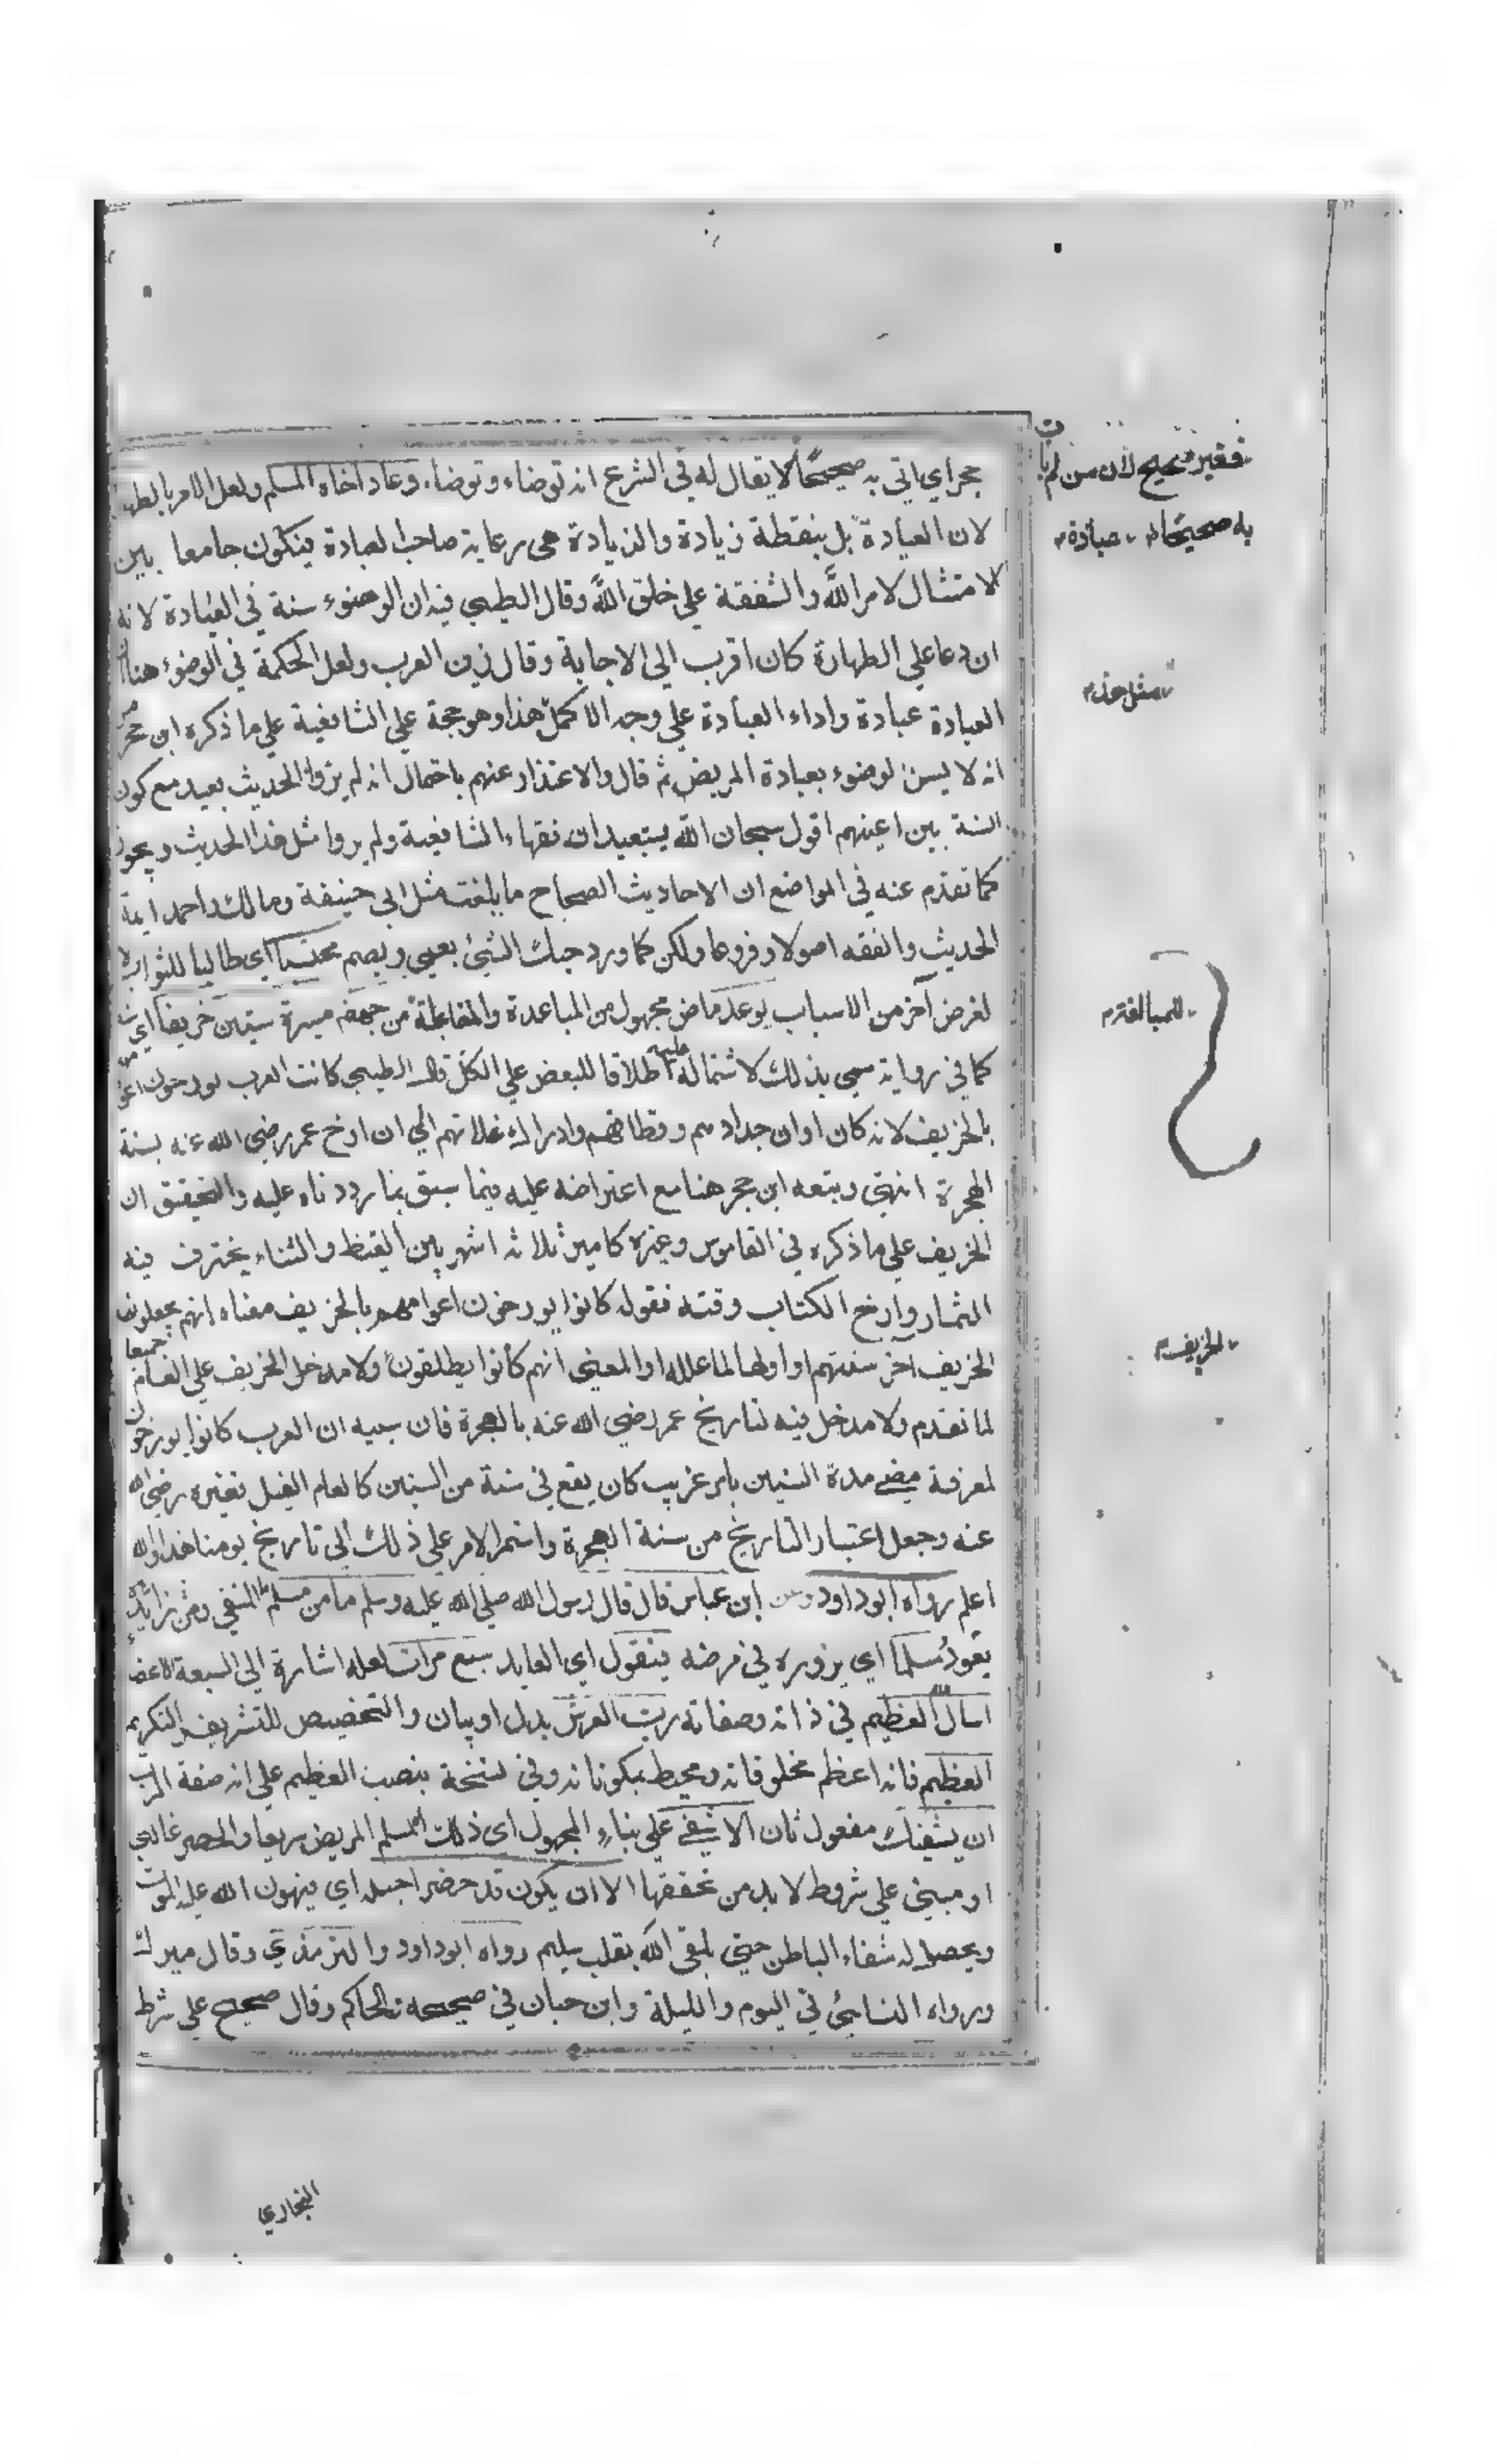 حجر اي اتي به صحيحًا لا يقال له في الشرع انه توضاء وتوضاء، وعاد اخاه المسلم ولعل الامر بالطها
لان العيادة بل بنقطة زيادة والزيادة هي رعاية صاحب العبادة فيكون جامعا بين
الامتثال لامر الله والشفقة علي خلق الله وقال الطيبي فيه ان الوضوء سنة في العيادة لانه
ان دعا علي الطهارة كان اقرب الي الاجابة وقال زين العرب ولعل الحكمة في الوضوء هنا ان
العيادة عبادة واداء العبادة علي وجه الاكمل هذا وهو حجة علي الشافعية علي ما ذكره ابن حجر من
انه لا يسن لوضوء بعيادة المريض ثم قال والاعتذار عنهم باحتمال انه لم يروا الحديث بعيد مع كون
السنة بين اعينهم اقول سبحان الله يستبعد ان فقهاء الشافعية ولم يروا مثل هذا الحديث ويجوز
كما تقدم عنه في المواضع ان الاحاديث الصحاح ما بلغت مثل ابي حنيفة ومالك واحمد ايمة
الحديث والفقه اصولا وفروعا ولكن كما ورد حبك الشيئ يعمي ويصم محتسبا اي طالبا للثواب لا
لغرض آخر من الاسباب بوعد ماض مجهول من المباعدة والمفاعلة من جهنم مسيرة ستين خريفا اي
كما في رواية سمي بذلك لاشتماله عليه اطلاقا للبعض علي الكل قال الطيبي كانت العرب يورخون اعوامهم
بالخريف لانه كان اوان جدادهم وقطافهم وادراك غلاتهم الي ان ارخ عمر رضي الله عنه بسنة
الهجرة انتهي وتبعه ابن حجر هنا مع اعتراضه عليه فيما سبق بما رددناه عليه والتحقيق ان
الخريف علي ما ذكره في القاموس وغيره كامير ثلاثه اشهر بين القيظ والشتاء يخترف فيه
الثمار وارخ الكتاب وقته فقوله كانوا يورخون اعوامهم بالخريف معناه انهم يجعلون
الخريف اخر سنتهم او اولها لما علله او المعني انهم كانوا يطلقون ولا مدخل الخريف علي العام جميعا
لما تقدم ولا مدخل فيه لتاريخ عمر رضي الله عنه بالهجرة فان سببه ان العرب كانوا يورخون
لمعرفة مضي مدة السنين بامر غريب كان يقع في سنة من السنين كالعام الفيل فغيره رضي الله
عنه وجعل اعتبار التاريخ من سنة الهجرة واستمر الامر علي ذلك الي تاريخ يومنا هذا والله
اعلم رواه ابوداود وعن ابن عباس قال قال رسول الله صلي الله عليه وسلم ما من مسلم ما النفي ومن زائدة
يعود مسلما اي يزوره في مرضه فيقول اي العايد سبع مرات لعله اشارة الي السبعة الاعضا
اسال الله العظيم في ذاته وصفاته رب العرش بدل او بيان والتخصيص للتشريف والتكريم
العظيم فانه اعظم مخلوقاته ومحيط بمكوناته وفي نسخة بنصب العظيم علي انه صفة الرب
ان يشفيك مفعول ثان الا شفي علي بناء المجهول اي ذلك المسلم المريض سريعا والحصر غالبي
او مبني علي شروط لا بد من تحققها الا ان يكون قد حضر اجله اي فيهون الله عليه الموت
ويحصل له شفاء الباطن حتي يلقي الله بقلب سليم رواه ابوداود والترمذي وقال ميرك
ورواه النسايئ في اليوم والليلة وابن حبان في صحيحه والحاكم وقال صحيح علي شرط
البخاري
فغير صحيح لان من لم يات
به صحيحًا م عبادة م
مثل هذه م
للمبالغة م
الخريف م